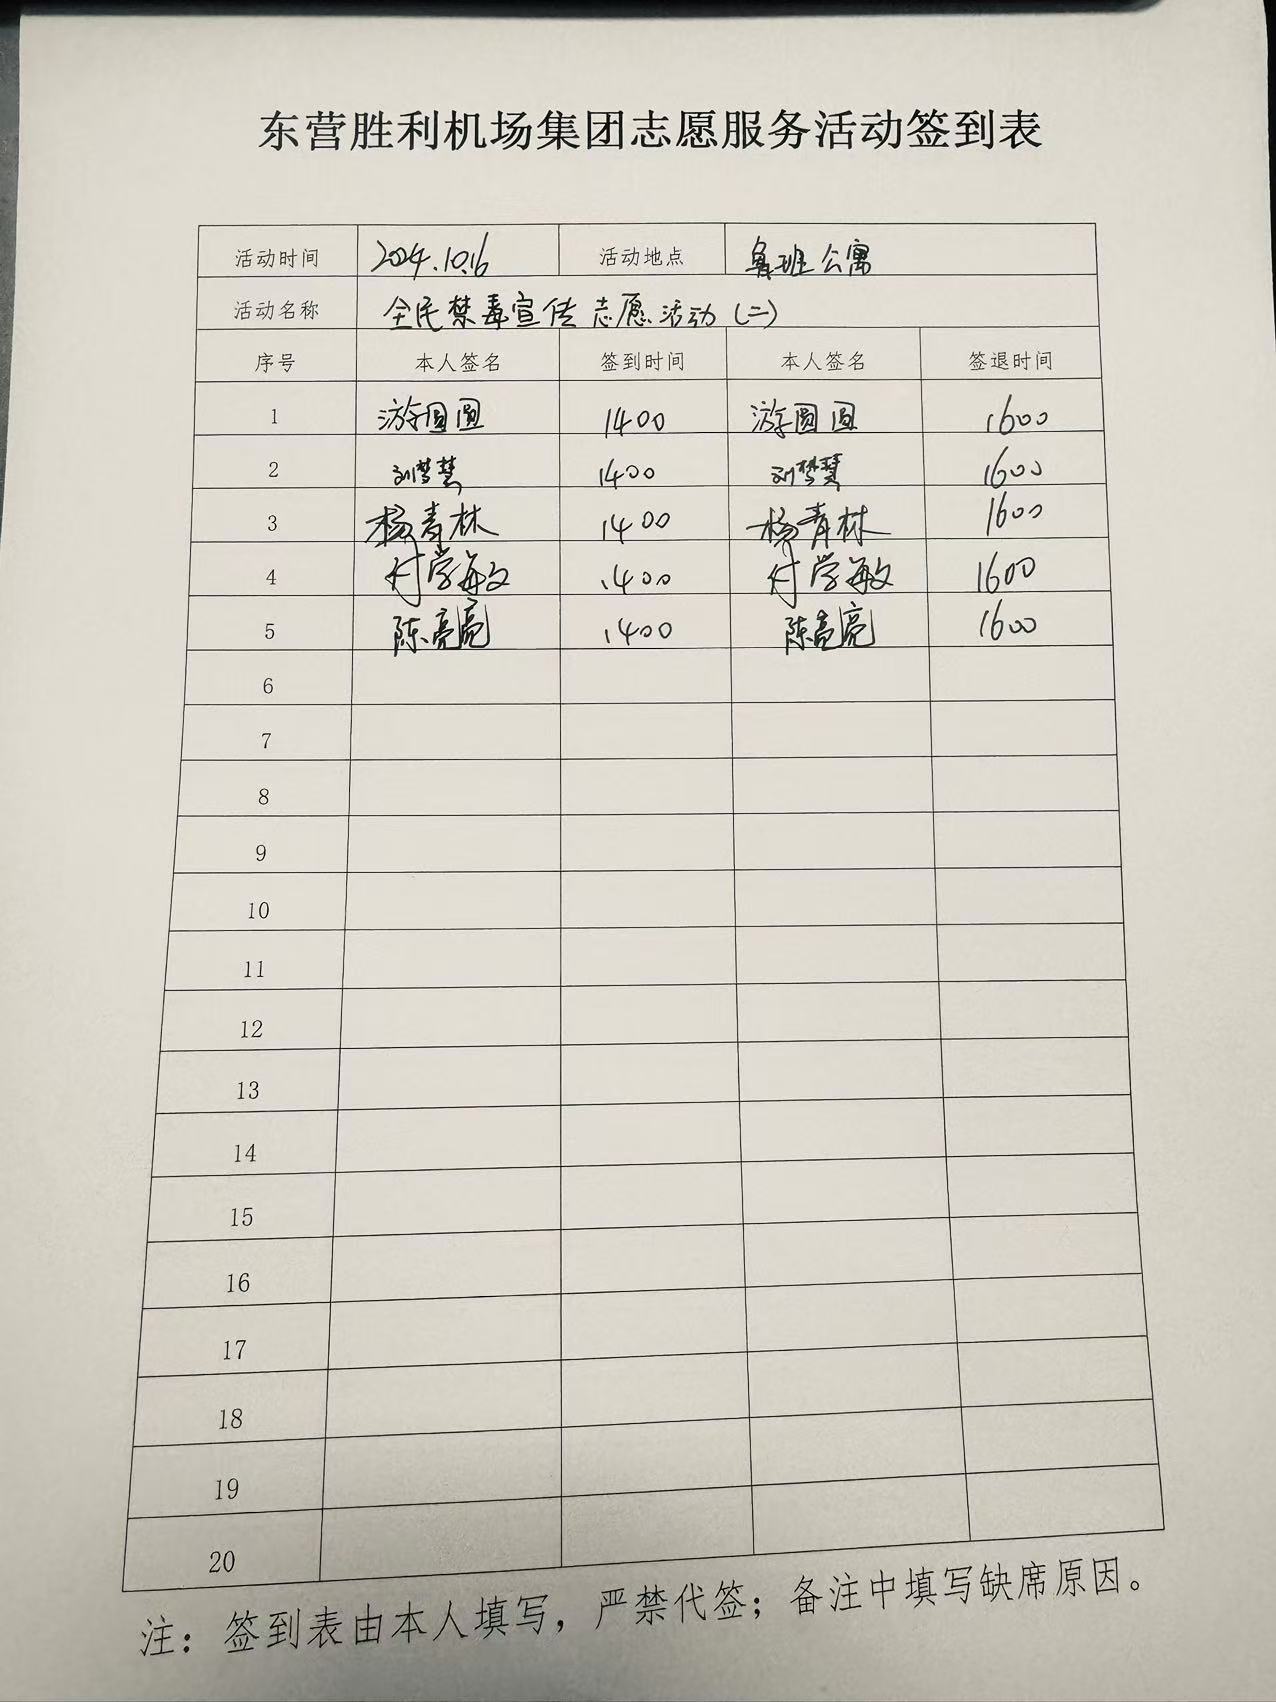 东营胜利机场集团志愿服务活动签到表
活动时间 2024.10.16 活动地点 鲁班公寓
活动名称 全民禁毒宣传志愿活动（二）
序号 本人签名 签到时间 本人签名 签退时间
1 游圆圆 1400 游圆圆 1600
2 刘梦慧 1400 刘梦慧 1600
3 杨青林 1400 杨青林 1600
4 付学敏 1400 付学敏 1600
5 陈亮亮 1400 陈亮亮 1600
6
7
8
9
10
11
12
13
14
15
16
17
18
19
20
注：签到表由本人填写，严禁代签；备注中填写缺席原因。